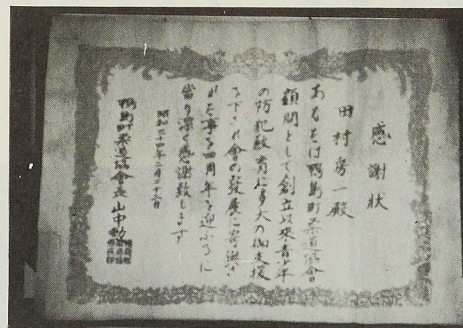 感謝状
田村房一殿
あなたは鴨島町柔道協會
顧問として創立以来青少年
の防犯教育に多大の御支援
を下され会の発展に寄與さ
れ本年四周年を迎ふるに
當り深く感謝致します
昭和三十四年二月二十二日
鴨島町柔道協會長 山中